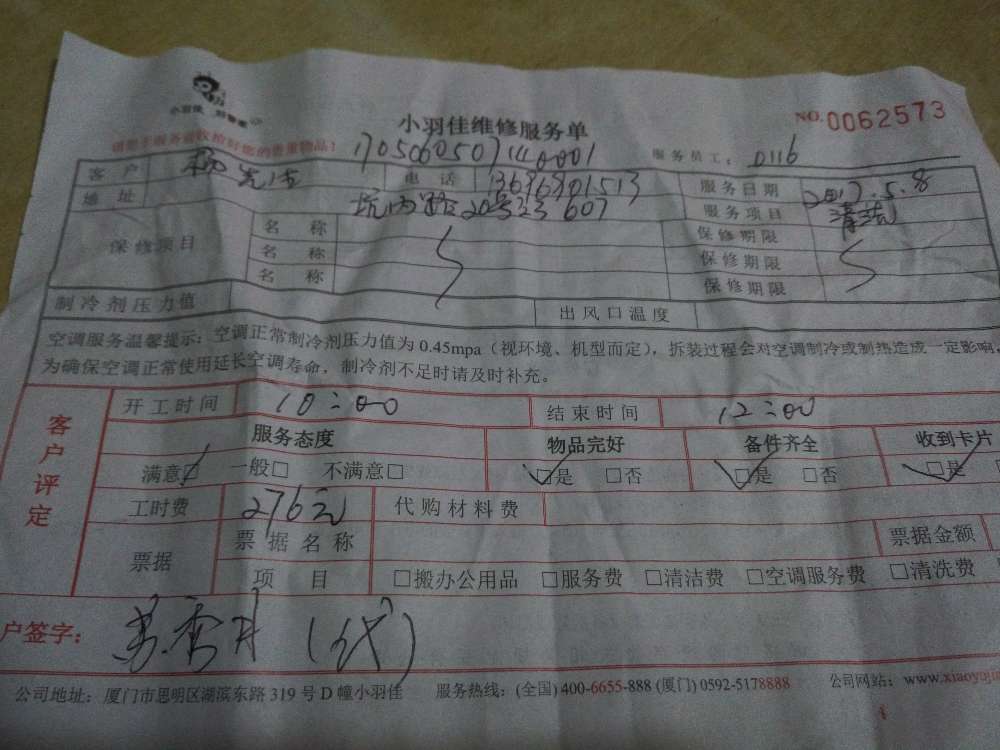 小羽佳维修服务单
NO. 0062573
请您于服务前收拾好您的贵重物品!
17050605071140001
服务员工: 0116
客 户
电 话
服务日期 2017.5.8
地 址
607
服务项目 清洁
保修项目
名 称
保修期限
名 称
保修期限
名 称
保修期限
制冷剂压力值
出风口温度
空调服务温馨提示:空调正常制冷剂压力值为 0.45mpa(视环境、机型而定),拆装过程会对空调制冷或制热造成一定影响,
为确保空调正常使用延长空调寿命,制冷剂不足时请及时补充。
客户评定
开工时间 10:00 结束时间 12:00
服务态度 物品完好 备件齐全 收到卡片
满意☑ 一般□ 不满意□ ☑是 □否 ☑是 □否 ☑是
工时费 276元 代购材料费
票据 票据名称 票据金额
项 目 □搬办公用品 □服务费 □清洁费 □空调服务费 □清洗费
户签字: (代)
公司地址:厦门市思明区湖滨东路 319 号 D 幢小羽佳 服务热线:(全国) 400-6655-888 (厦门) 0592-5178888 公司网站:www.xiaoyuj